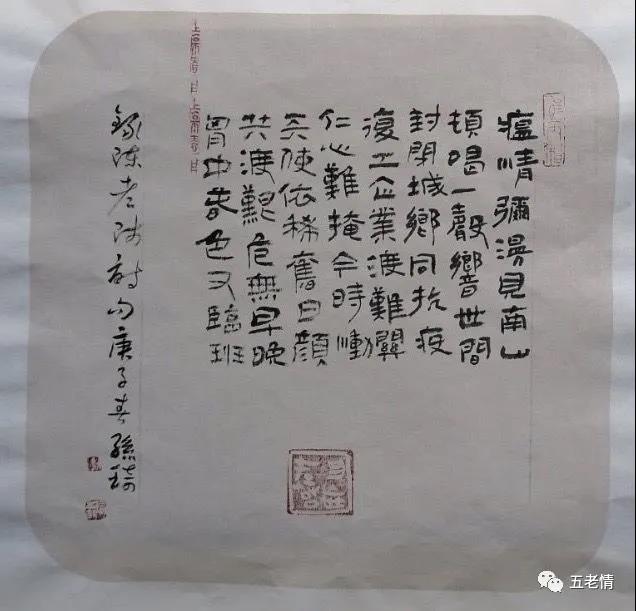 瘟情彌漫見南山
頓喝一聲響世間
封閉城鄉同抗疫
復工企業渡難關
仁心難掩今時慟
天使依稀舊日顏
共渡艱危無早晚
胃中春色又臨班
錄陳老師詩句庚子春孫琦
五老情